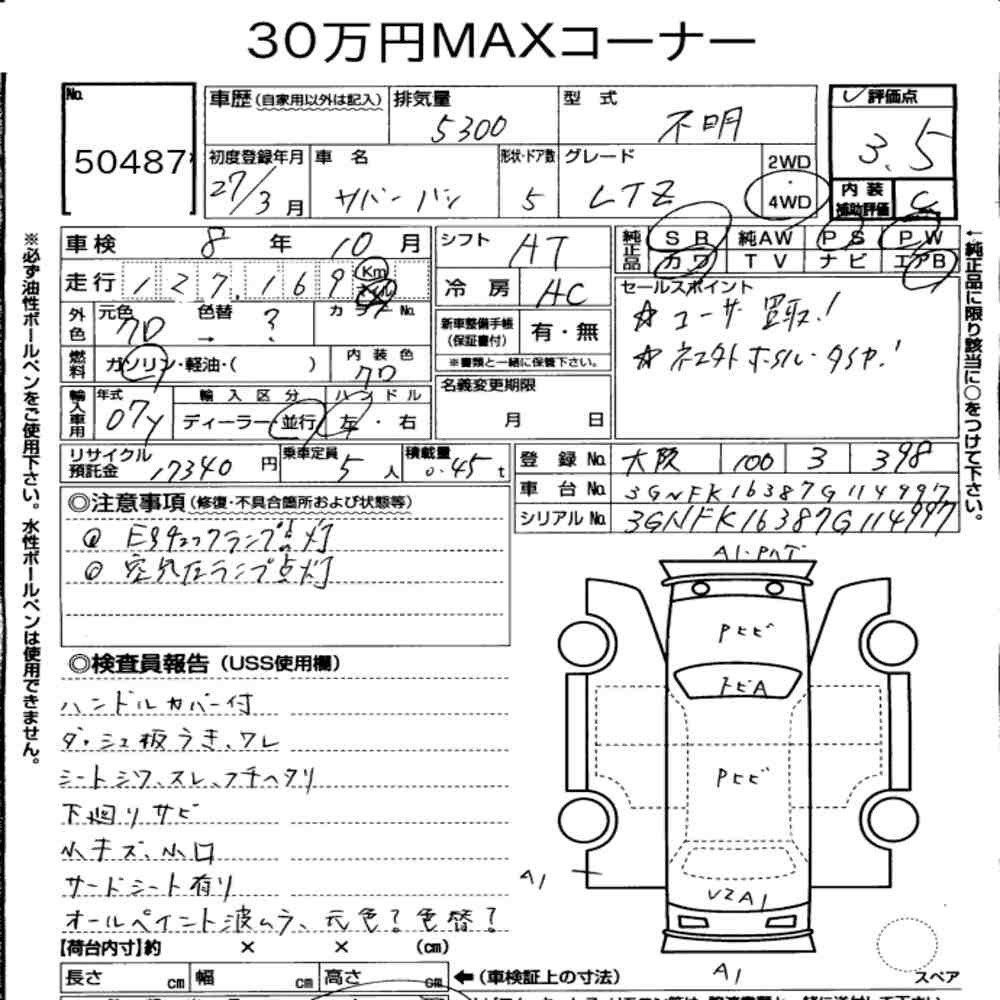 30万円MAXコーナー
No.
50487
車歴(自家用以外は記入)
排気量
5300
型 式
不明
評価点
3.5
初度登録年月
27/3月
車 名
サバーバン
形状・ドア数
5
グレード
LTZ
2WD
・
4WD
内 装
補助評価
C
車検 8年 10月
走行 127,169 Km
マイル
シフト
AT
冷 房
AC
純正品
SR 純AW PS PW
カワ TV ナビ エアB
外色
元色
クロ
色替
→ ?
カラーNo.
燃料
ガソリン・軽油・( )
内 装 色
クロ
新車整備手帳
(保証書付)
有・無
※書類と一緒に保管下さい。
セールスポイント
☆ ユーザー買取!
輸入車用
年式
07y
輸 入 区 分
ディーラー・並行
ハ ン ド ル
左 ・ 右
名義変更期限
月 日
リサイクル
預託金
17340 円
乗車定員
5 人
積載量
0.45 t
登 録 No. 大阪 100 3 398
車 台 No. 3GNFK16387G114997
シリアルNo. 3GNFK16387G114997
◎注意事項(修復・不具合箇所および状態等)
空気圧ランプ点灯
◎検査員報告(USS使用欄)
ハンドルカバー付
ダッシュ板うき、ワレ
シートシワ、スレ、フチヘタリ
下廻りサビ
小キズ、小凹
サードシート有り
オールペイント波ムラ、元色?色替?
A1・Pハゲ
Pヒビ
トビA
Pヒビ
A1
V2A1
A1
スペア
【荷台内寸】約 × × (cm)
長さ cm 幅 cm 高さ cm
←(車検証上の寸法)
※必ず油性ボールペンをご使用下さい。水性ボールペンは使用できません。
←純正品に限り該当に○をつけて下さい。